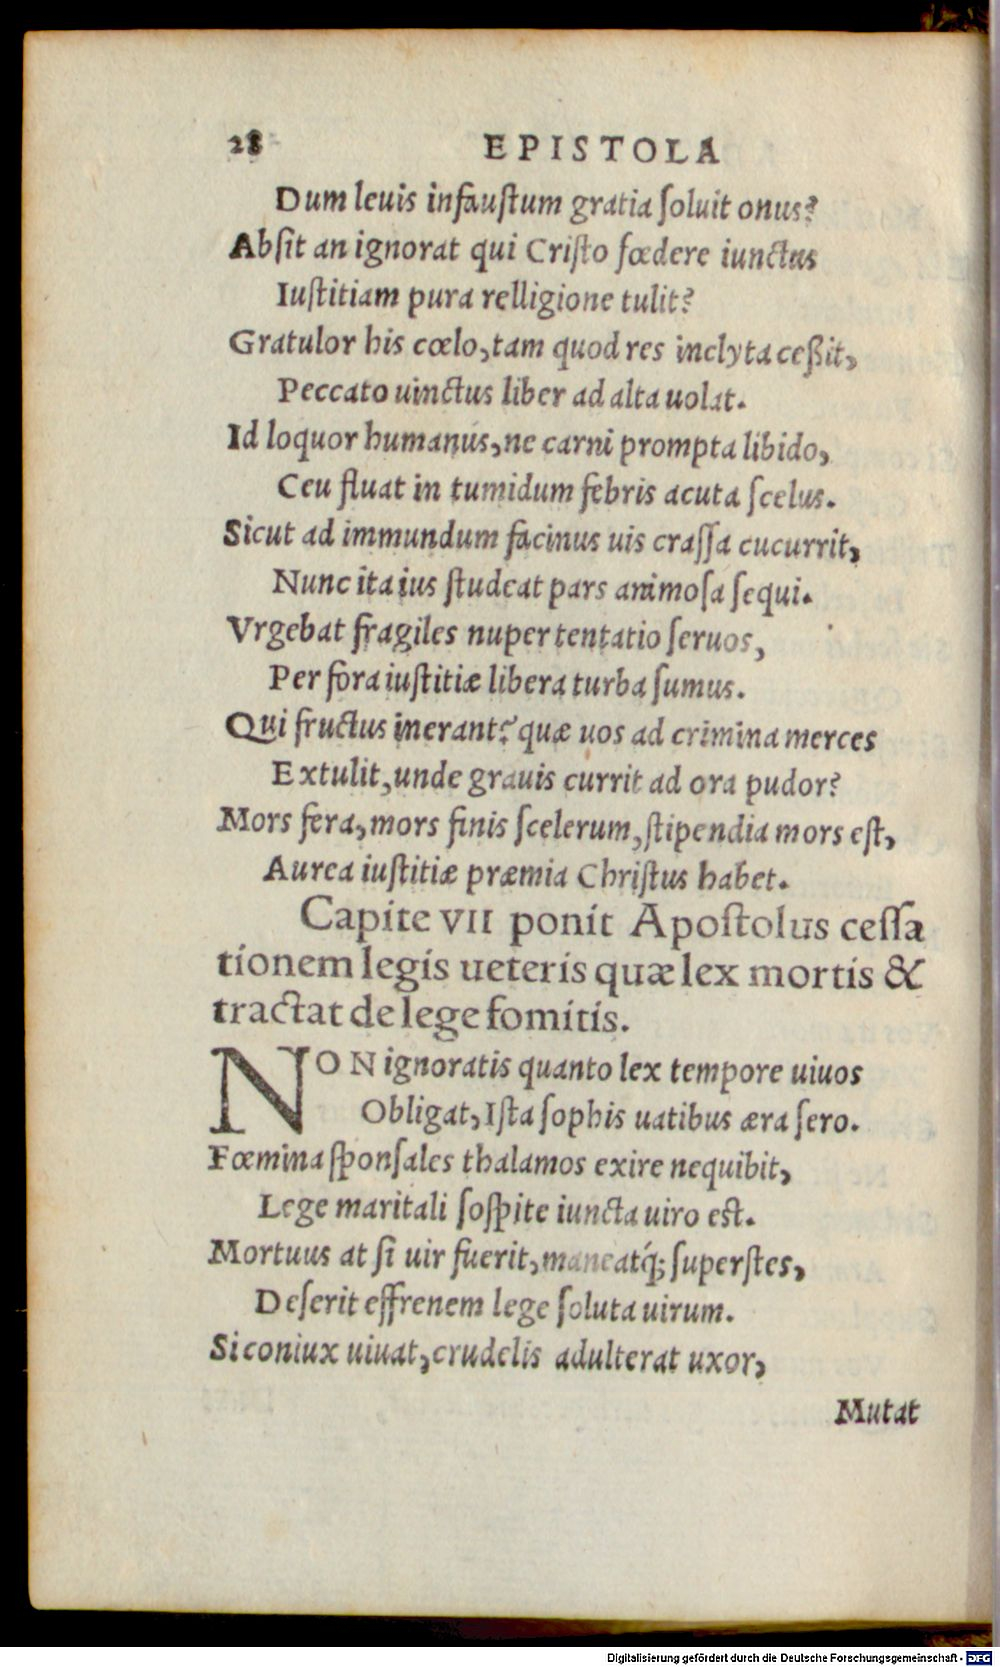 28 EPISTOLA
Dum leuis infaustum gratia soluit onus?
Absit an ignorat qui Cristo fœdere iunctus
Iustitiam pura relligione tulit?
Gratulor his cœlo, tam quod res inclyta ceßit,
Peccato uinctus liber ad alta uolat.
Id loquor humanus, ne carni prompta libido,
Ceu fluat in tumidum febris acuta scelus.
Sicut ad immundum facinus uis crassa cucurrit,
Nunc ita ius studeat pars animosa sequi.
Vrgebat fragiles nuper tentatio seruos,
Per fora iustitiæ libera turba sumus.
Qui fructus inerant? quæ uos ad crimina merces
Extulit, unde grauis currit ad ora pudor?
Mors fera, mors finis scelerum, stipendia mors est,
Aurea iustitiæ præmia Christus habet.
Capite VII ponit Apostolus cessa
tionem legis ueteris quæ lex mortis &
tractat de lege fomitis.
NON ignoratis quanto lex tempore uiuos
Obligat, Ista sophis uatibus æra sero.
Fœmina sponsales thalamos exire nequibit,
Lege maritali sospite iuncta uiro est.
Mortuus at si uir fuerit, maneatq́; superstes,
Deserit effrenem lege soluta uirum.
Si coniux uiuat, crudelis adulterat uxor,
Mutat
Digitalisierung gefördert durch die Deutsche Forschungsgemeinschaft - DFG